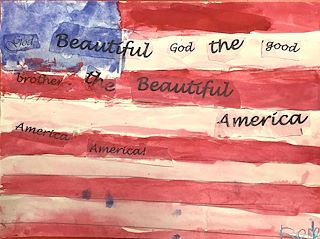 God Beautiful God the good
brother, the Beautiful
America
America
America!